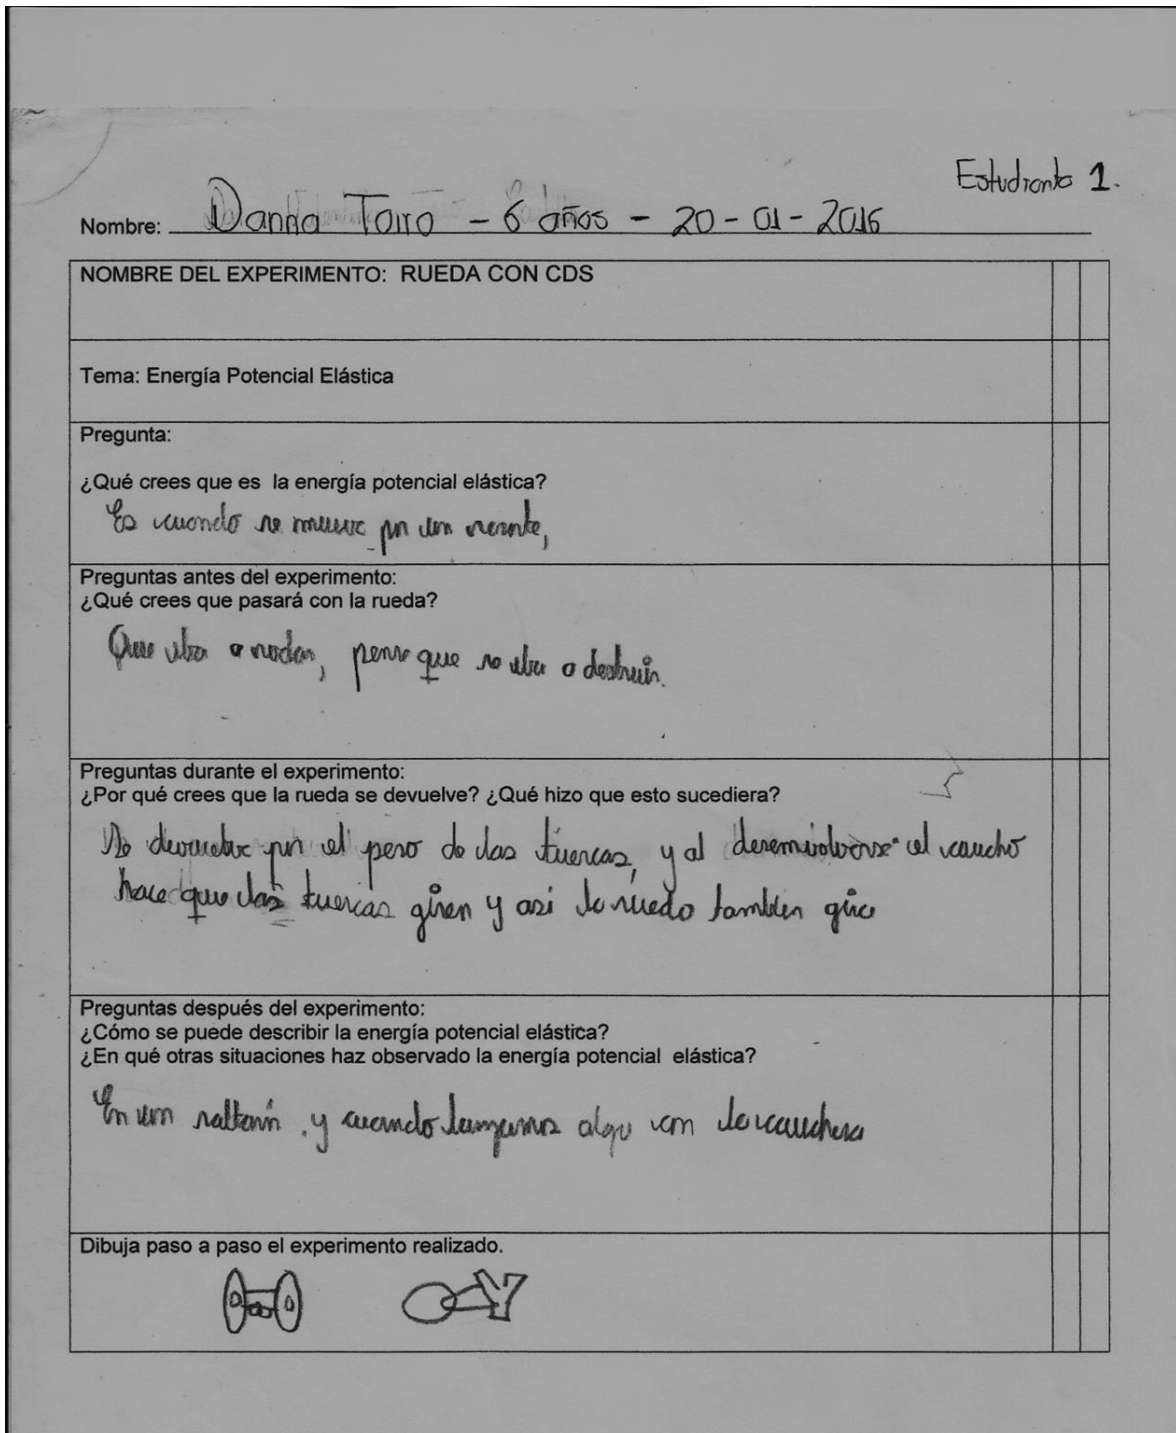 Estudiante 1.
Nombre: Danna Toro - 6 años - 20-01-2016
NOMBRE DEL EXPERIMENTO: RUEDA CON CDS
Tema: Energía Potencial Elástica
Pregunta:
¿Qué crees que es la energía potencial elástica?
Es cuando se mueve por un resorte,
Preguntas antes del experimento:
¿Qué crees que pasará con la rueda?
Que iba a rodar, pense que se iba a destruir.
Preguntas durante el experimento:
¿Por qué crees que la rueda se devuelve? ¿Qué hizo que esto sucediera?
Se devuelve por el peso de las tuercas, y al desemvolverse el caucho
hace que las tuercas giren y asi la rueda tambien gira
Preguntas después del experimento:
¿Cómo se puede describir la energía potencial elástica?
¿En qué otras situaciones haz observado la energía potencial elástica?
En un saltarin, y cuando lanzamos algo con la cauchera
Dibuja paso a paso el experimento realizado.